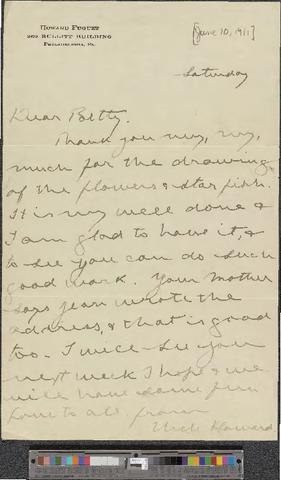 HOWARD FUGUET
909 BULLITT BUILDING
PHILADELPHIA, PA.
[June 10, 1911]
Saturday
Dear Betty.
Thank you very, very,
much for the drawing
of the flowers & star fish.
It is very well done &
I am glad to have it, &
to see you can do such
good work. Your Mother
says you wrote the
address, & that is good
too. I will see you
next week I hope & we
will have some fun
Love to all, from
Uncle Howard